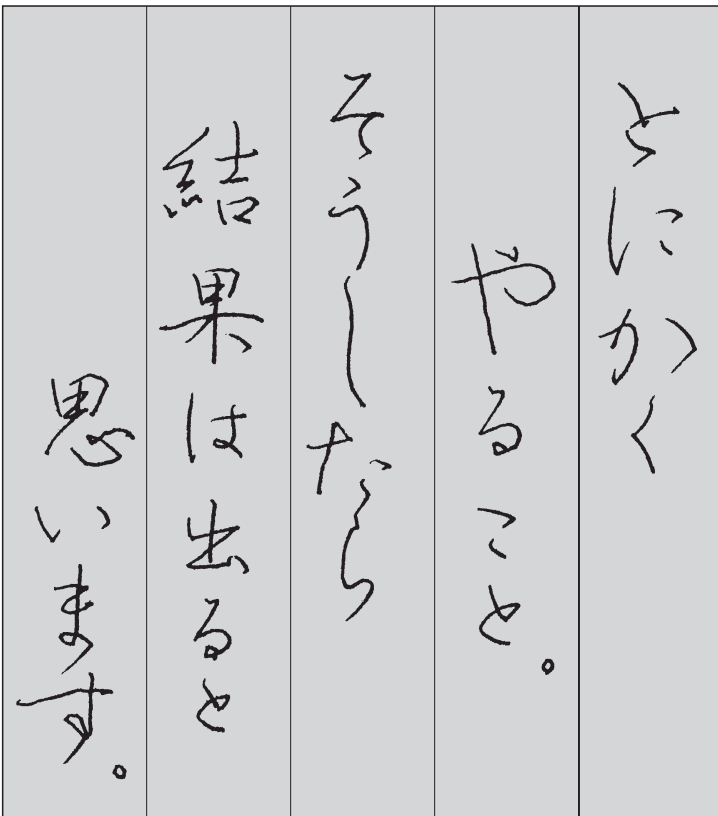 とにかく
やること。
そうしたら
結果は出ると
思います。